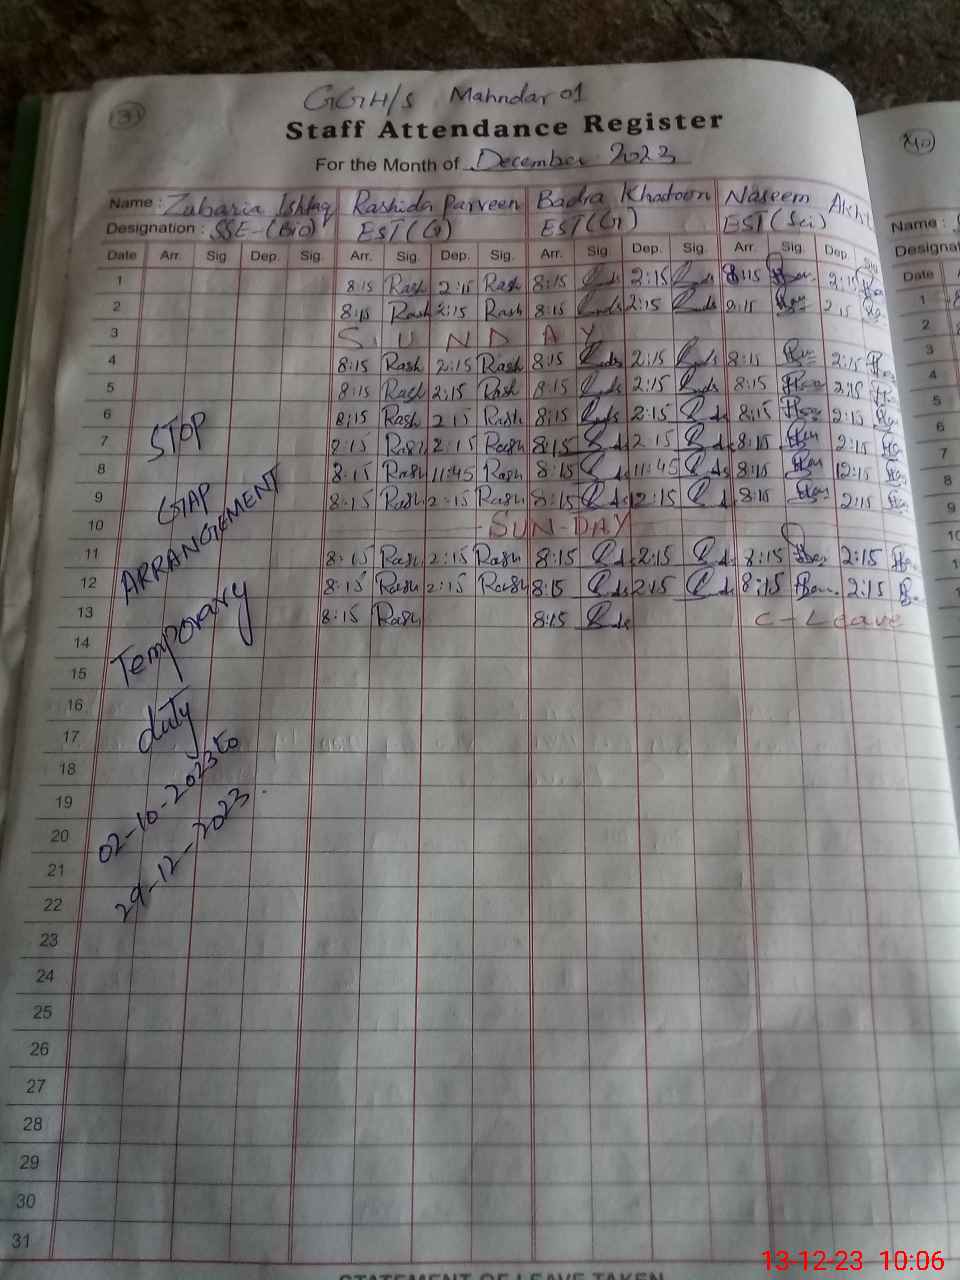 39
GGH/S Mahndar 01
Staff Attendance Register
For the Month of December 2023
Name : Zubaria Ishfaq Rashida Parveen Badra Khatoon Naseem Akht
Designation : SSE-(Bio) EST(G) EST(G) EST(Sci)
Date Arr. Sig Dep. Sig. Arr. Sig. Dep. Sig. Arr. Sig. Dep. Sig. Arr. Sig. Dep. Sig
1 8:15 Rash 2:15 Rash 8:15 2:15 8:15 2:15
2 8:15 Rash 2:15 Rash 8:15 2:15 8:15 2:15
3 SUNDAY
4 8:15 Rash 2:15 Rash 8:15 2:15 8:15 2:15
5 8:15 Rash 2:15 Rash 8:15 2:15 8:15 2:15
6 8:15 Rash 2:15 Rash 8:15 2:15 8:15 2:15
7 8:15 Rash 2:15 Rash 8:15 2:15 8:15 2:15
8 8:15 Rash 11:45 Rash 8:15 11:45 8:15 12:15
9 8:15 Rash 2:15 Rash 8:15 12:15 8:15 2:15
10 SUN-DAY
11 8:15 Rash 2:15 Rash 8:15 2:15 8:15 2:15
12 8:15 Rash 2:15 Rash 8:15 2:15 8:15 2:15
13 8:15 Rash 8:15 C-Leave
14
15
16
17
18
19
20
21
22
23
24
25
26
27
28
29
30
31
STOP
GAP
ARRANGEMENT
Temporary
duty
02-10-2023 to
29-12-2023.
STATEMENT OF LEAVE TAKEN
40
Name :
Designat
Date
1
2
3
4
5
6
7
8
9
10
13-12-23 10:06